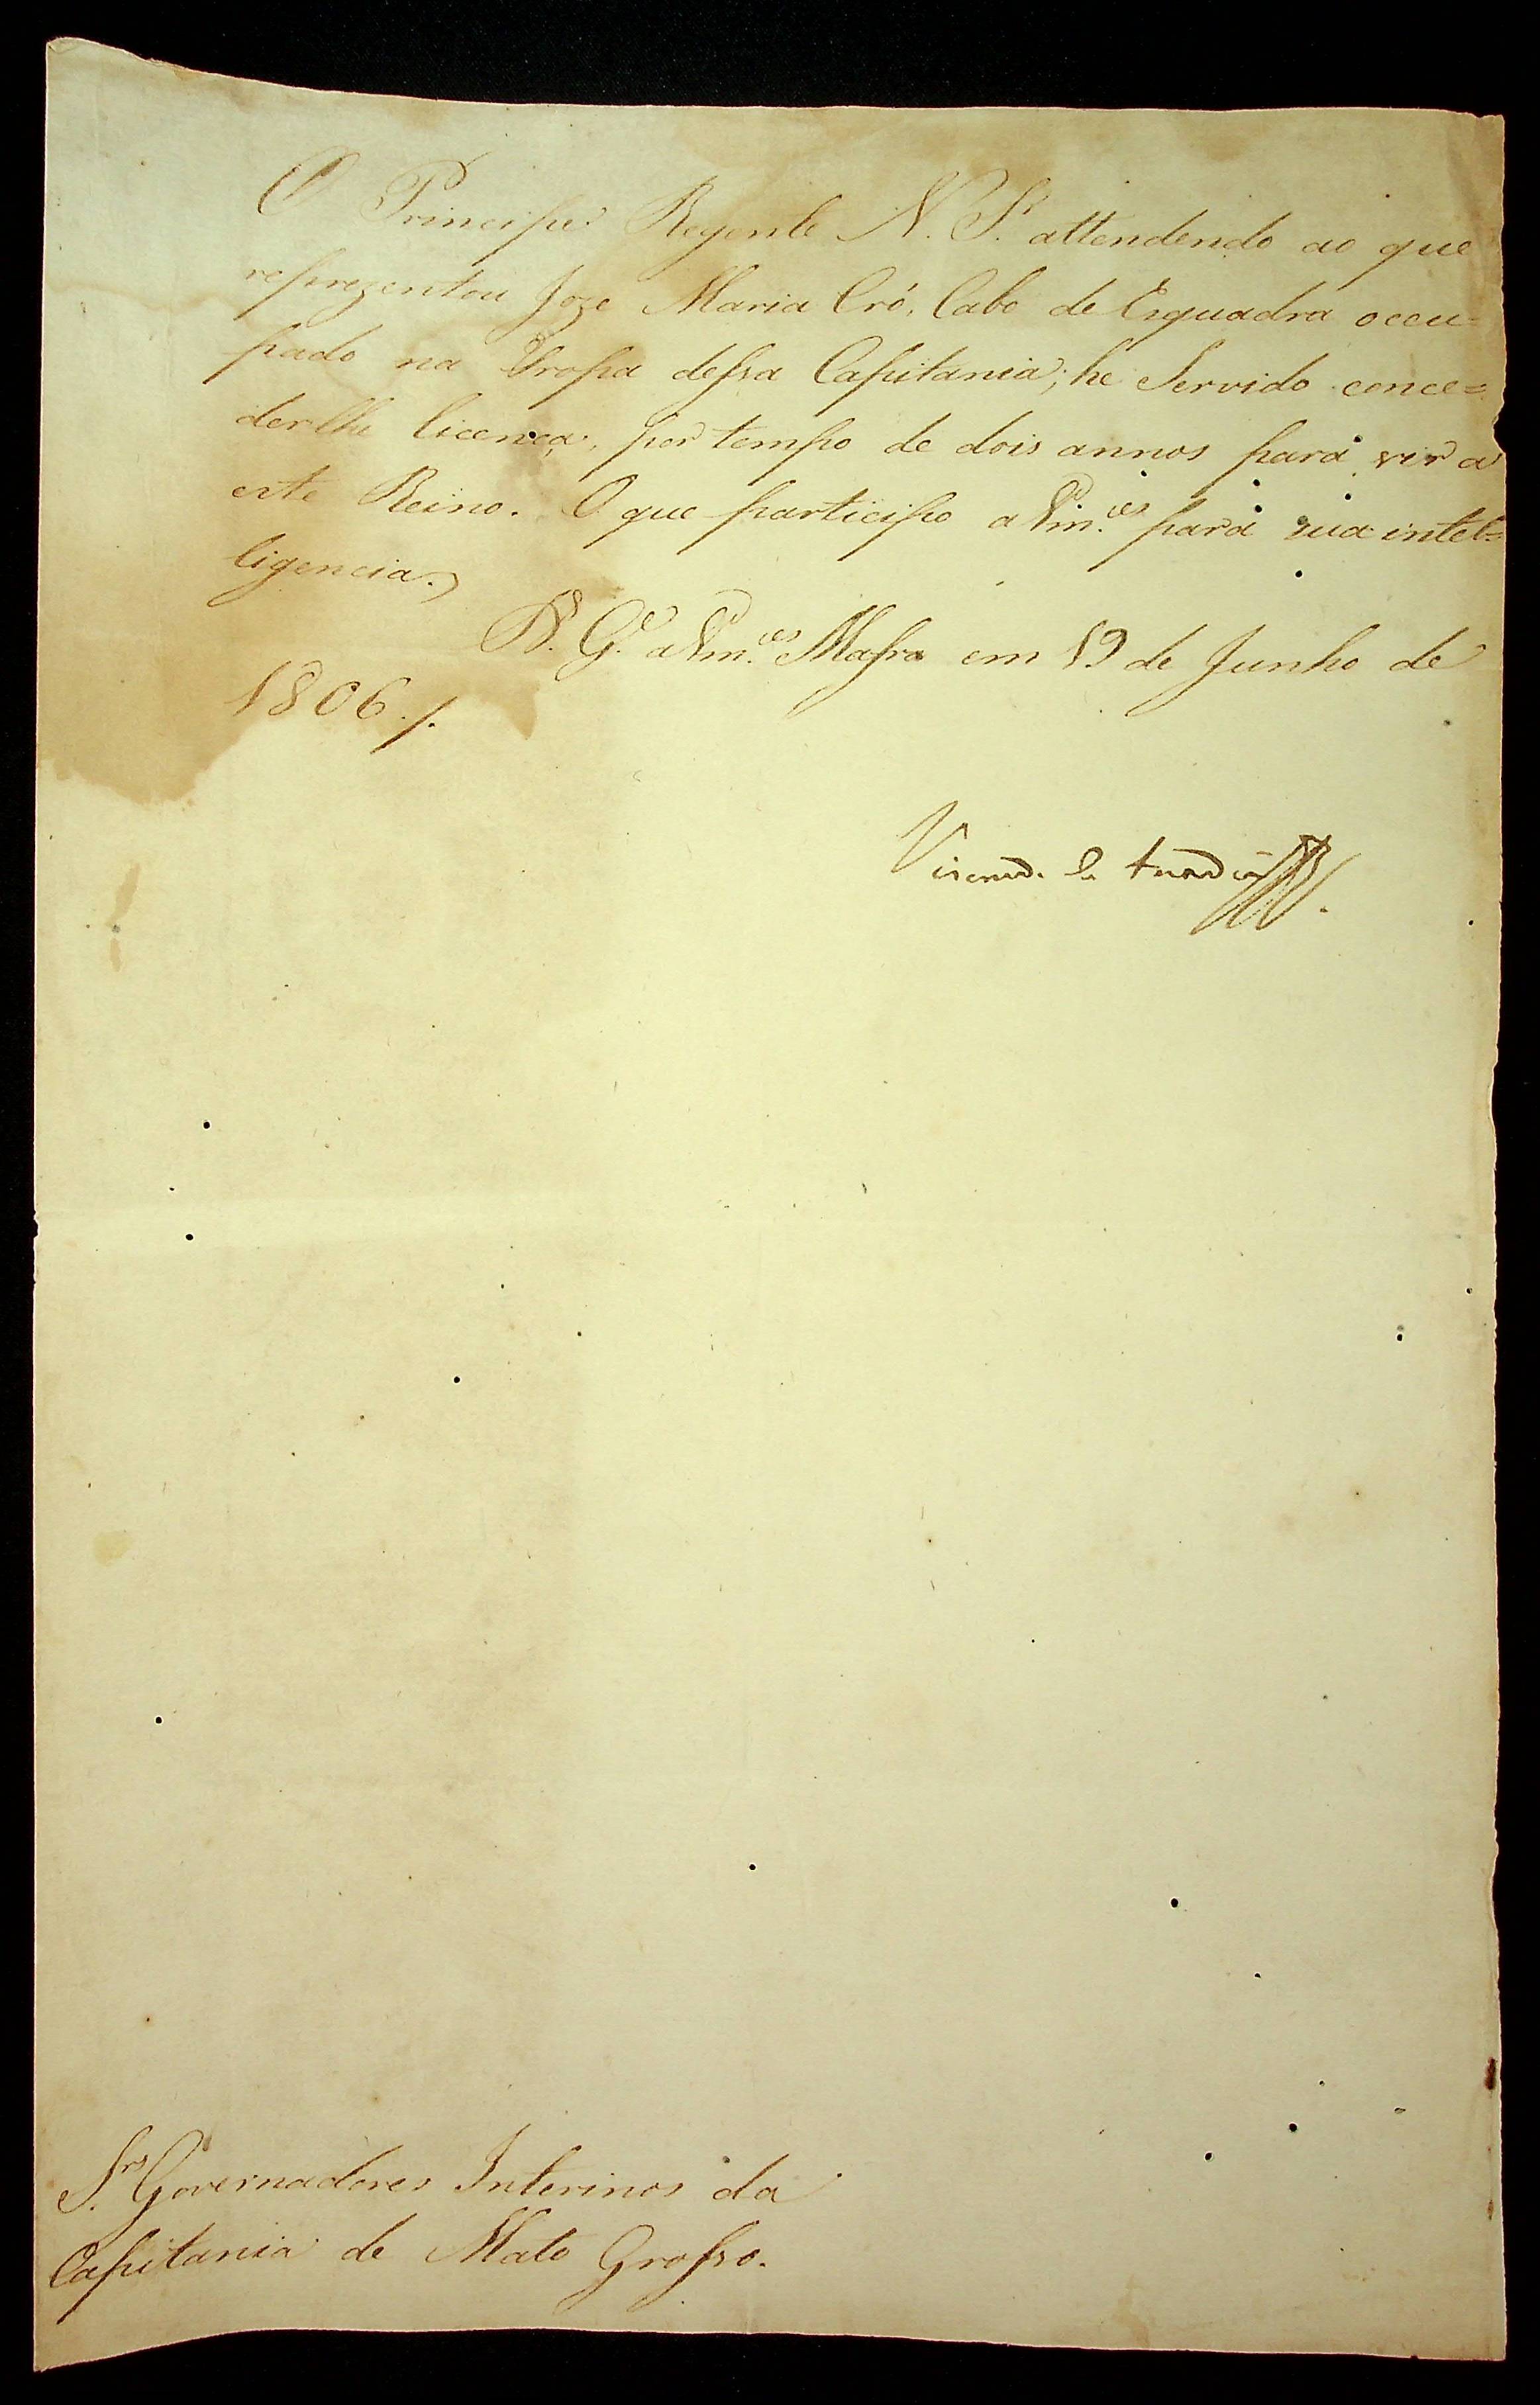 O Principe Regente N. S.r attendendo ao que
reprezentou Joze Maria Cró, Cabo de Esquadra occu=
pado na Tropa dessa Capitania; he Servido conce=
derlhe licença, por tempo de dois annos para vir a
este Reino. O que participo a Vm.ces para sua intel=
ligencia.
D. G.e a Vm.ces Mafra em 19 de Junho de
1806./.
Viscond. de Anadia
S.rs Governadores Interinos da
Capitania de Mato Grosso.